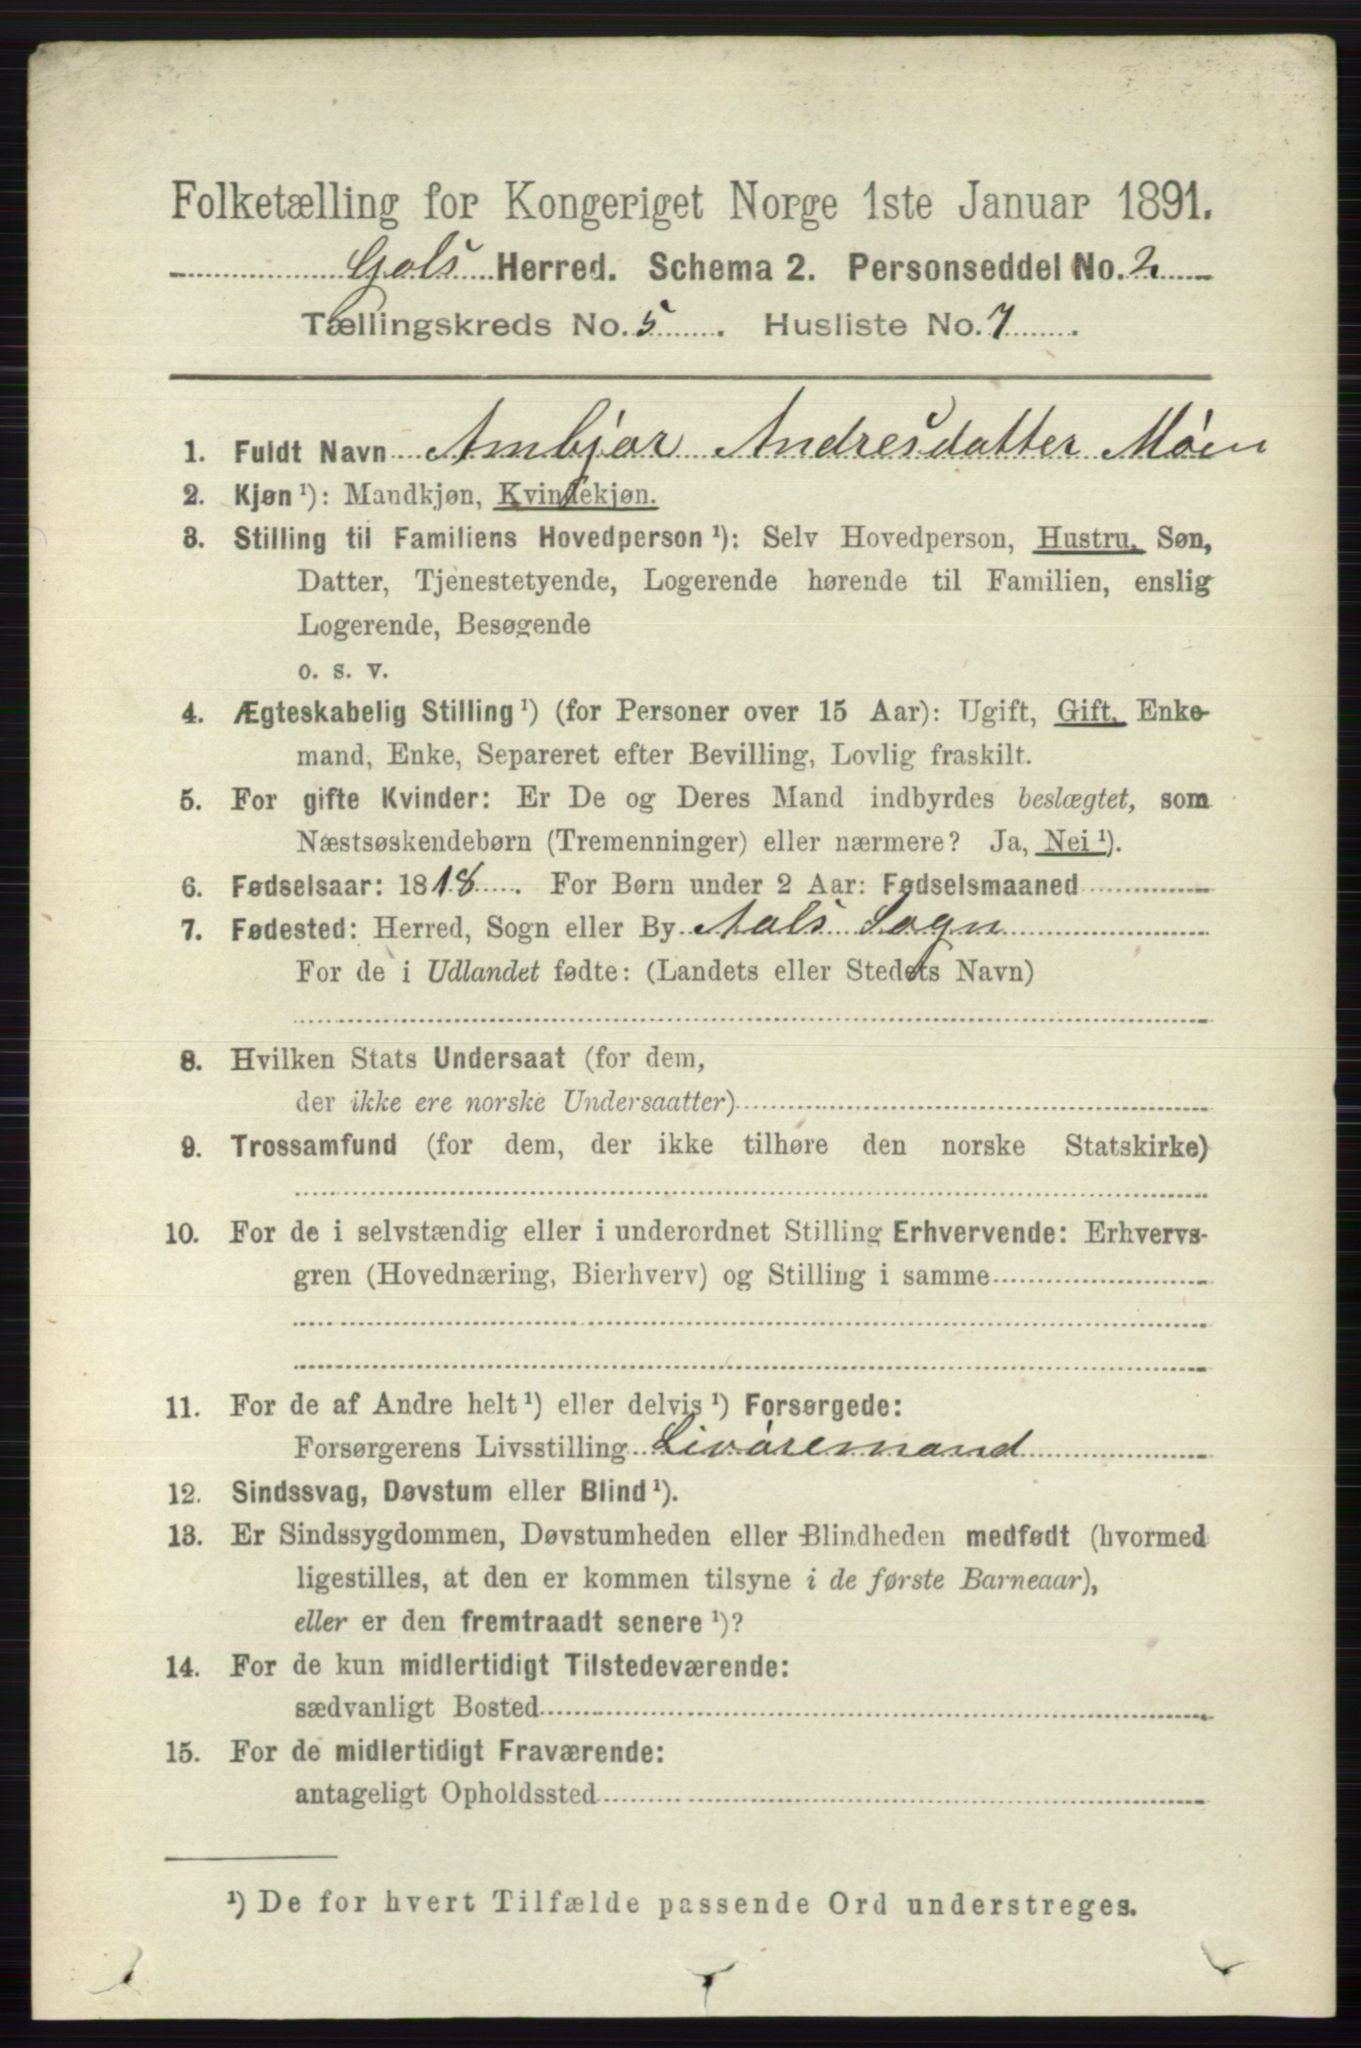 Folketælling for Kongeriget Norge 1ste Januar 1891.
Gols Herred. Schema 2. Personseddel No. 2
Tællingskreds No. 5 . Husliste No. 7 .
1. Fuldt Navn Ambjør Andresdatter Møen
2. Kjøn ¹): Mandkjøn, Kvindekjøn.
3. Stilling til Familiens Hovedperson ¹): Selv Hovedperson, Hustru, Søn,
Datter, Tjenestetyende, Logerende hørende til Familien, enslig
Logerende, Besøgende
o. s. v.
4. Ægteskabelig Stilling ¹) (for Personer over 15 Aar): Ugift, Gift, Enke-
mand, Enke, Separeret efter Bevilling, Lovlig fraskilt.
5. For gifte Kvinder: Er De og Deres Mand indbyrdes beslægtet, som
Næstsøskendebørn (Tremenninger) eller nærmere? Ja, Nei ¹).
6. Fødselsaar: 1818 . For Børn under 2 Aar: Fødselsmaaned
7. Fødested: Herred, Sogn eller By Aals Sogn
For de i Udlandet fødte: (Landets eller Stedets Navn)
8. Hvilken Stats Undersaat (for dem,
der ikke ere norske Undersaatter)
9. Trossamfund (for dem, der ikke tilhøre den norske Statskirke)
10. For de i selvstændig eller i underordnet Stilling Erhvervende: Erhvervs-
gren (Hovednæring, Bierhverv) og Stilling i samme
11. For de af Andre helt ¹) eller delvis ¹) Forsørgede:
Forsørgerens Livsstilling Livøremand
12. Sindssvag, Døvstum eller Blind ¹).
13. Er Sindssygdommen, Døvstumheden eller Blindheden medfødt (hvormed
ligestilles, at den er kommen tilsyne i de første Barneaar),
eller er den fremtraadt senere ¹)?
14. For de kun midlertidigt Tilstedeværende:
sædvanligt Bosted
15. For de midlertidigt Fraværende:
antageligt Opholdssted
¹) De for hvert Tilfælde passende Ord understreges.